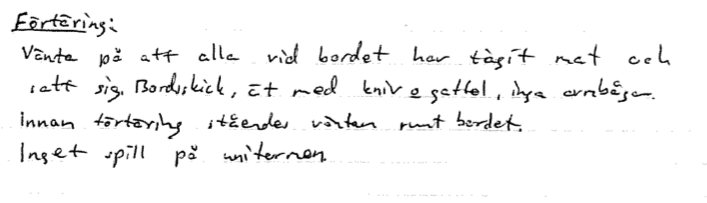 Förtäring:
Vänta på att alla vid bordet har tagit mat och
satt sig. Bordsskick, ät med kniv o gaffel, inga armbågar.
Innan förtäring ståendes väntan runt bordet.
Inget spill på uniformen